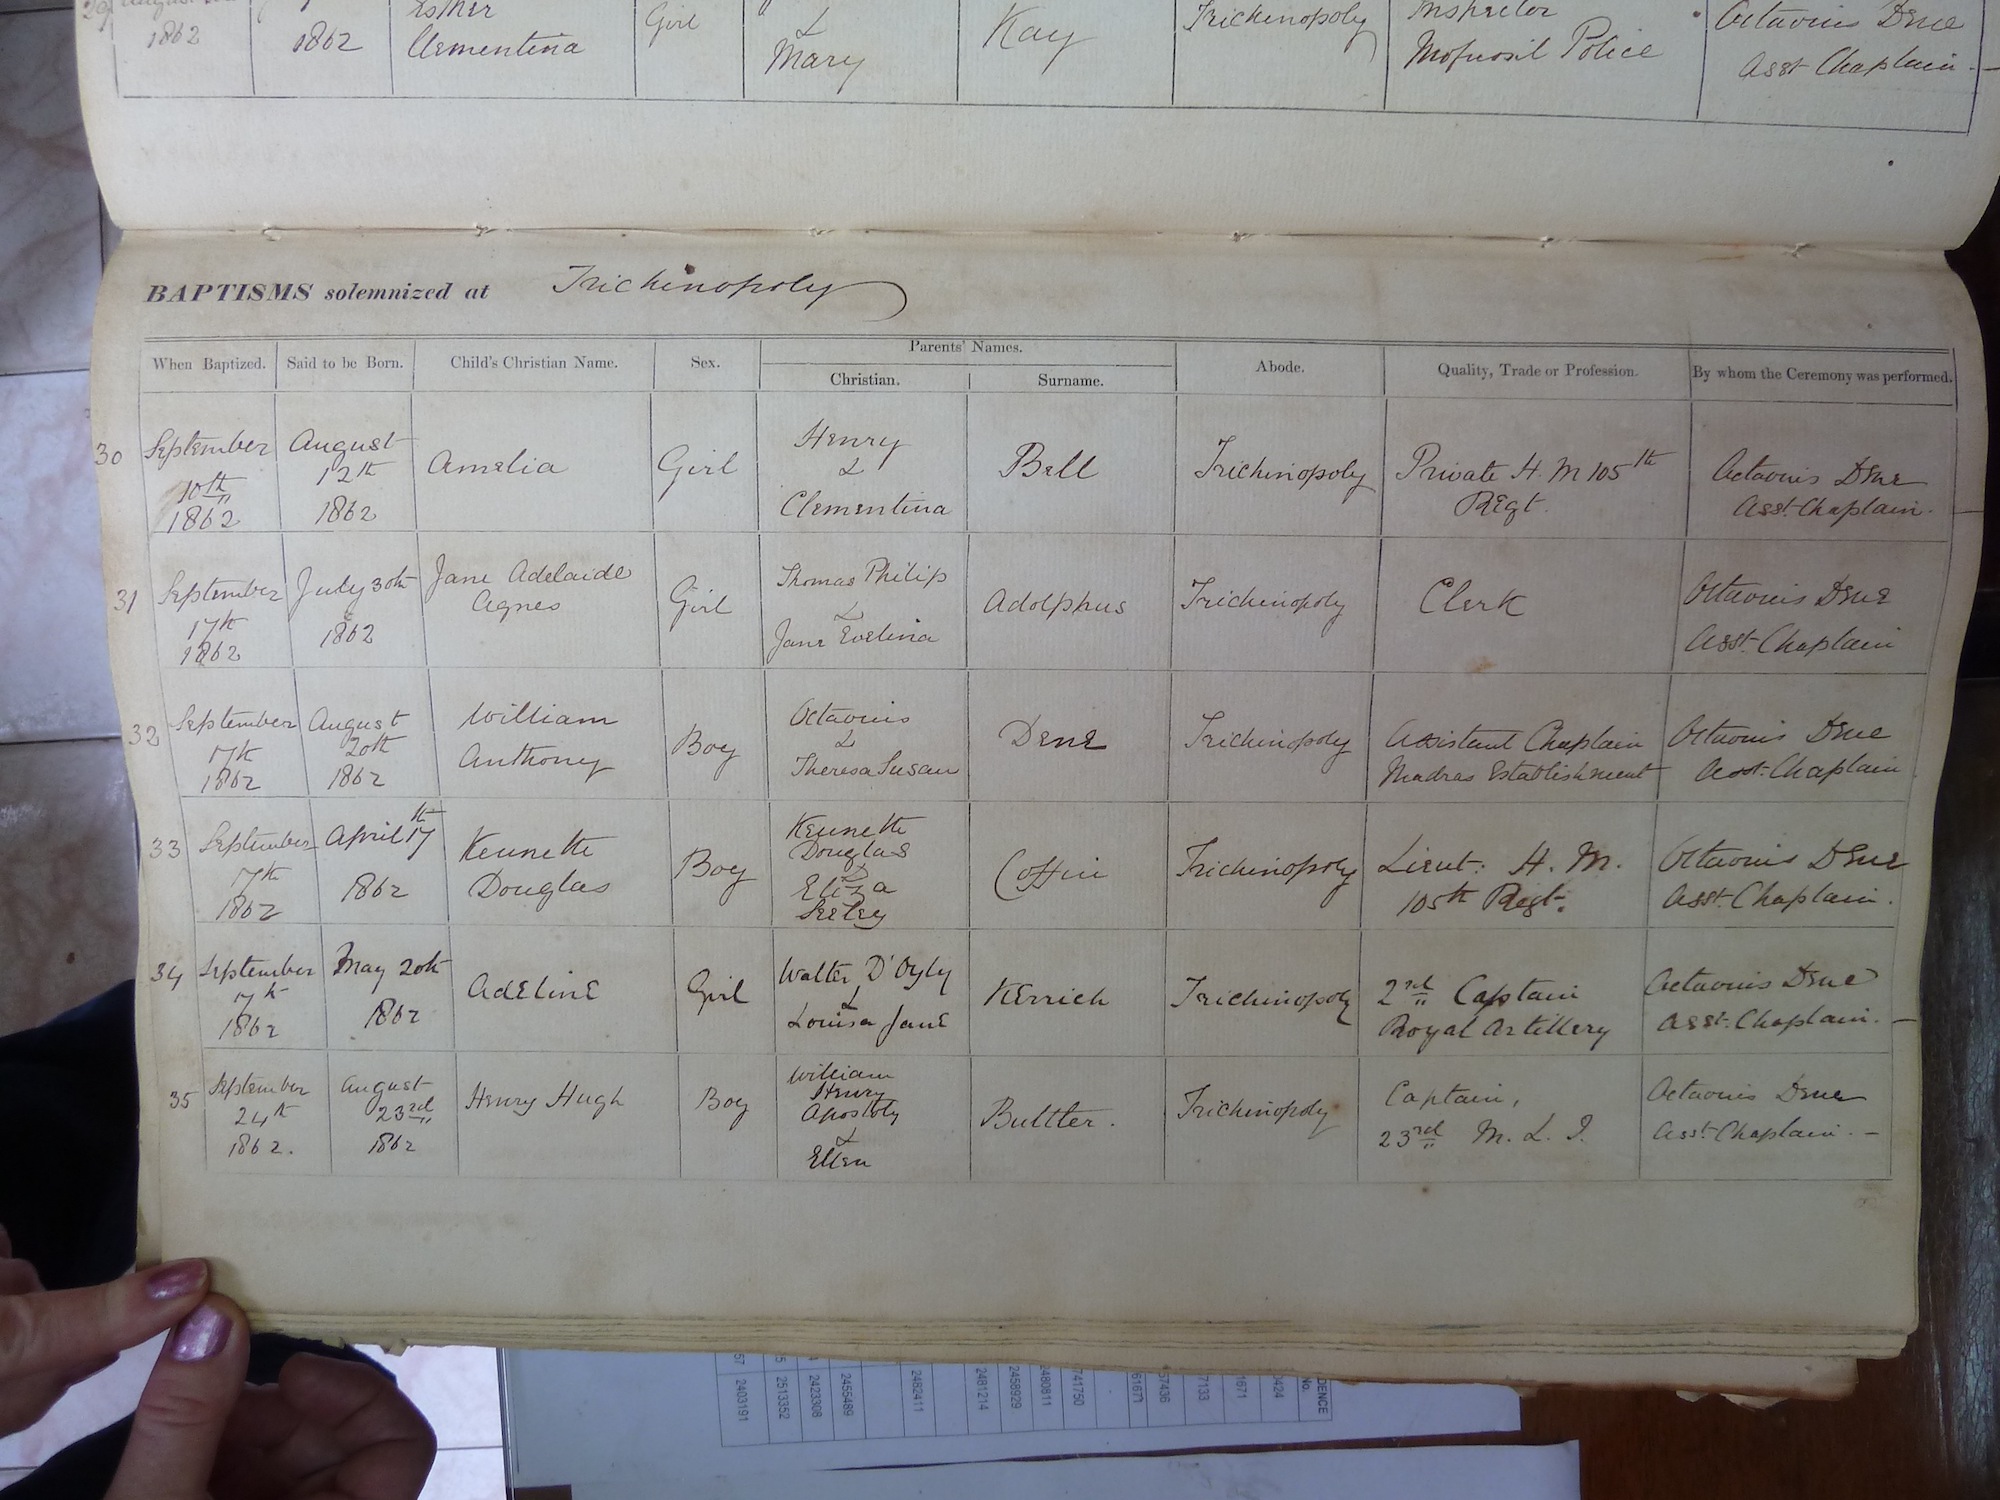 29
1862
1862
Esther
Clementina
Girl
&
Mary
Kay
Trichinopoly
Inspector
Mofussil Police
Octavius Dene
Asst Chaplain.—
BAPTISMS solemnized at Trichinopoly
When Baptized. Said to be Born. Child's Christian Name. Sex. Parents' Names. Abode. Quality, Trade or Profession. By whom the Ceremony was performed.
Christian. Surname.
30
September
10th
1862
August
12th
1862
Amelia
Girl
Henry
&
Clementina
Bell
Trichinopoly
Private H. M 105th
Regt.
Octavius Dene
Asst. Chaplain. —
31
September
17th
1862
July 30th
1862
Jane Adelaide
Agnes
Girl
Thomas Philip
&
Jane Evelina
Adolphus
Trichinopoly
Clerk
Octavius Dene
Asst. Chaplain
32
September
17th
1862
August
20th
1862
William
Anthony
Boy
Octavius
&
Theresa Susan
Dene
Trichinopoly
Assistant Chaplain
Madras Establishment
Octavius Dene
Asst. Chaplain
33
September
17th
1862
April 17th
1862
Kenneth
Douglas
Boy
Kenneth
Douglas
&
Eliza
Coffin
Trichinopoly
Lieut: H. M.
105th Regt.
Octavius Dene
Asst. Chaplain.
34
September
17th
1862
May 20th
1862
Adeline
Girl
Walter D'Oyly
&
Louisa Jane
Kerrich
Trichinopoly
2nd Captain
Royal Artillery
Octavius Dene
Asst. Chaplain. —
35
September
24th
1862.
August
23rd
1862
Henry Hugh
Boy
William
Henry
&
Ellen
Buttler.
Trichinopoly
Captain,
23rd M. L. I.
Octavius Dene
Asst. Chaplain. —
57 2403191
5 2513352
4 2423308
2455489
2462411
2481214
2458929
2480811
741750
61671
57436
7133
1671
0424
DENCE
No.